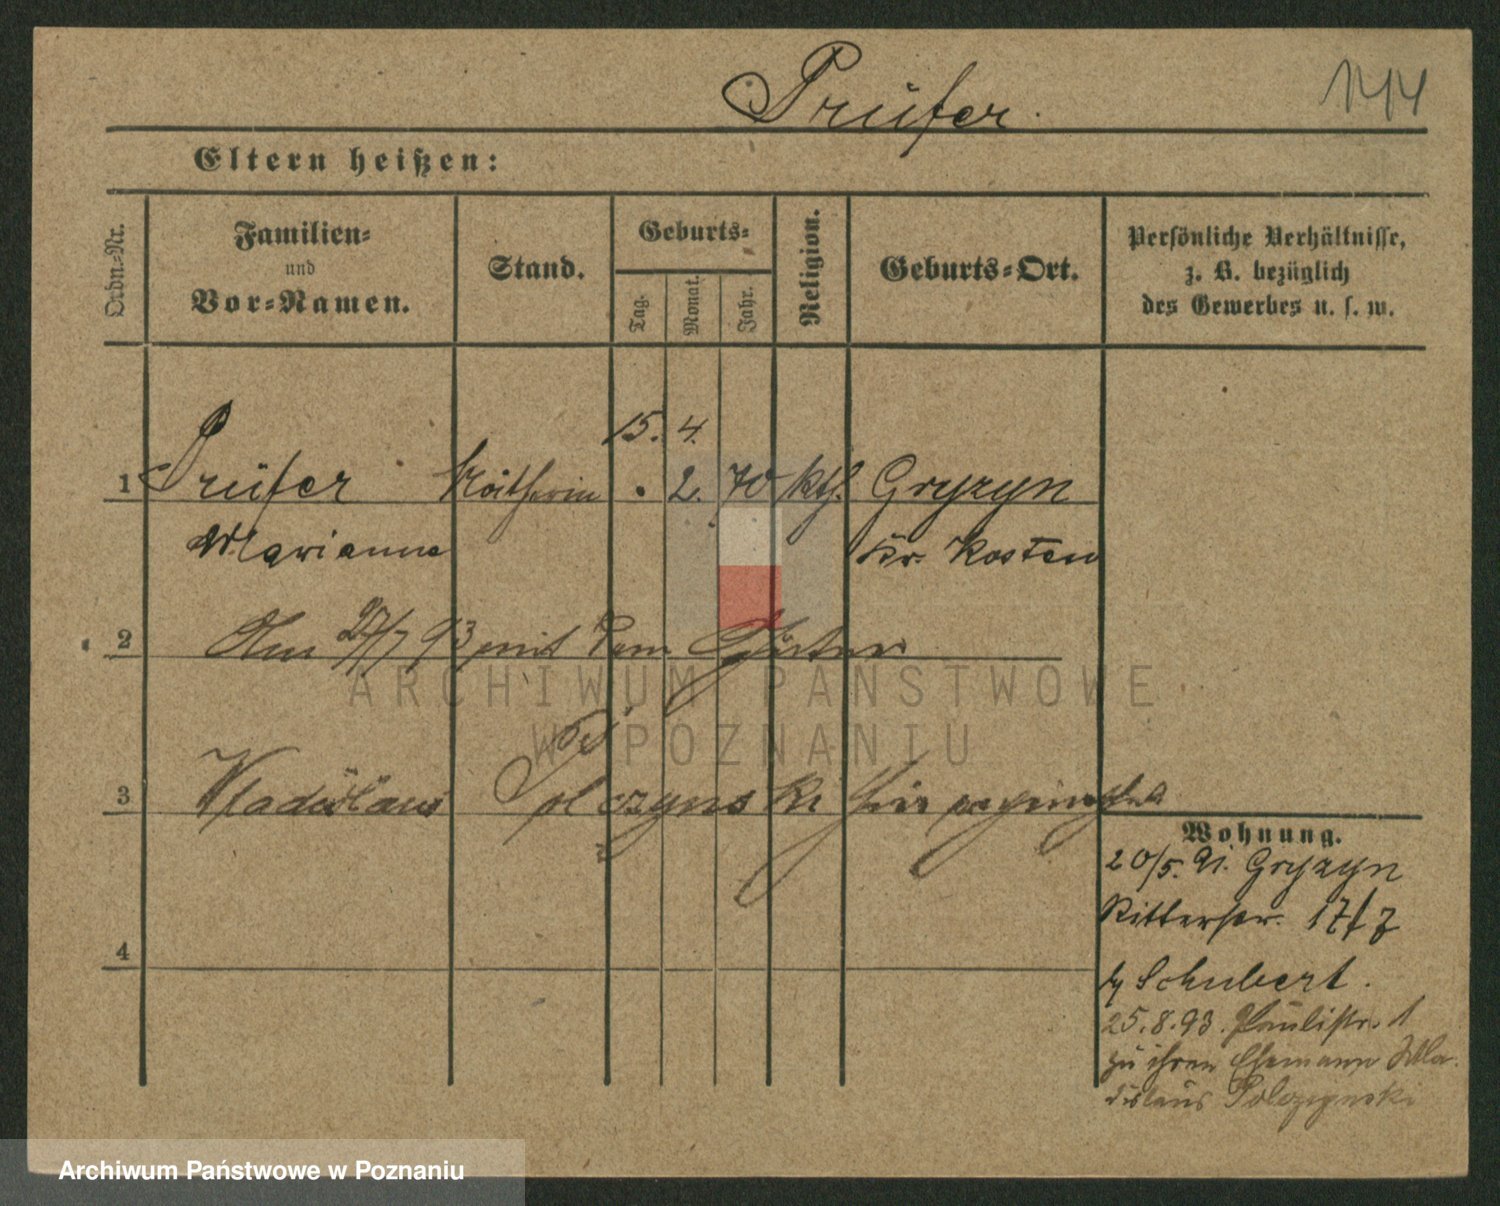 Prüfer.
1414
Eltern heißen:
Ordn.-Nr.
Familien-
und
Vor-Namen.
Stand.
Geburts-
Tag.
Monat.
Jahr.
Religion.
Geburts-Ort.
Persönliche Verhältnisse,
z. B. bezüglich
des Gewerbes u. s. w.
15. 4.
1 Prüfer 2. 70 kth. Gryzyn
Marianne Kr. Kosten
2 Am 27/7 93 mit dem Gärtner
3 Vladislaus Polczynski hier
4
Wohnung.
20/5. 91. Gryzyn
Ritterstr. 17/
b/ Schubert.
25.8.93. Paulistr. 1
zu ihren Ehemann Wla-
dislaus Polczynski
ARCHIWUM PAŃSTWOWE
W POZNANIU
Archiwum Państwowe w Poznaniu